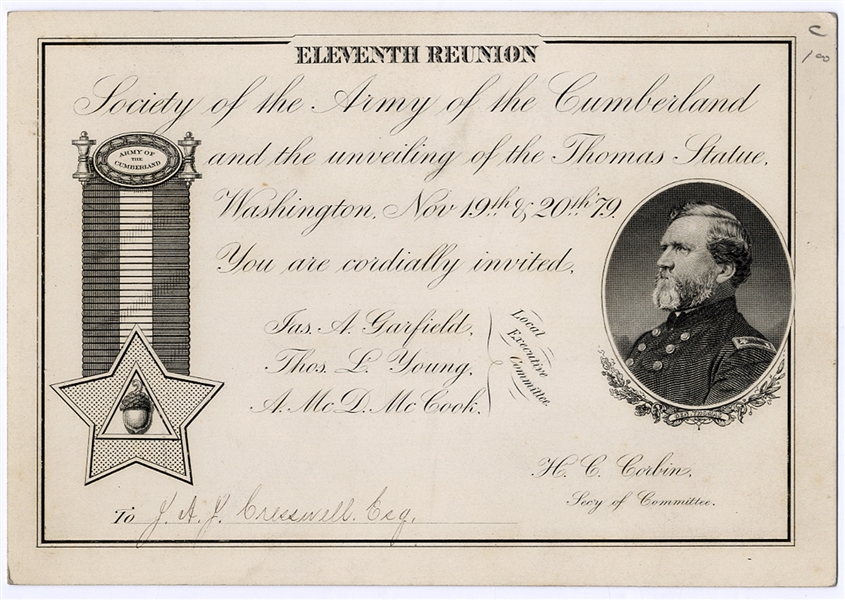 C
1 00
ELEVENTH REUNION
Society of the Army of the Cumberland
and the unveiling of the Thomas Statue,
Washington, Nov 19th & 20th '79.
You are cordially invited,
ARMY OF
THE
CUMBERLAND
Jas. A. Garfield,
Thos. L. Young,
A. Mc. D. Mc Cook,
Local
Executive
Committee.
GEO. THOMAS
H. C. Corbin,
Secy of Committee.
To J. A. J. Cresswell. Esq.